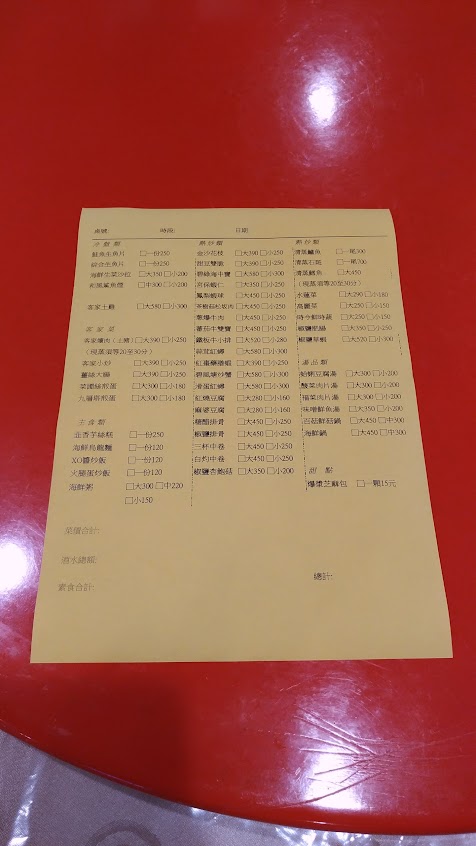 桌號: 時段: 日期:
冷盤類
鮭魚生魚片 □一份250
綜合生魚片 □一份250
海鮮生菜沙拉 □大350 □小200
和風鯊魚煙 □中300 □小200
客家土雞 □大580 □小300
客家菜
客家爌肉(土豬) □大390 □小250
(現蒸須等20至30分)
客家小炒 □大390 □小250
薑絲大腸 □大350 □小250
菜脯絲煎蛋 □大300 □小180
九層塔煎蛋 □大300 □小180
主食類
韭香芋絲糕 □一份250
海鮮烏龍麵 □一份120
XO醬炒飯 □一份120
火腿蛋炒飯 □一份120
海鮮粥 □大300 □中220
□小150
熱炒類
金沙花枝 □大390 □小250
甜豆雙脆 □大390 □小250
碧綠海中寶 □大580 □小300
宮保蝦仁 □大350 □小250
鳳梨蝦球 □大450 □小250
茶樹菇松坂肉 □大450 □小250
蔥爆牛肉 □大450 □小250
蕃茄牛雙寶 □大450 □小250
鐵板牛小排 □大520 □小280
蒜茸紅蟳 □大580 □小300
紅棗藥膳蝦 □大390 □小250
避風塘炒蟹 □大580 □小300
滑蛋紅蟳 □大580 □小300
紅燒豆腐 □大280 □小160
麻婆豆腐 □大280 □小160
糖醋排骨 □大450 □小250
椒鹽排骨 □大450 □小250
三杯中卷 □大450 □小250
白灼中卷 □大450 □小250
椒鹽杏鮑菇 □大350 □小200
熱炒類
清蒸鱸魚 □一尾300
清蒸石斑 □一尾700
清蒸鱈魚 □大450
(現蒸須等20至30分)
水蓮菜 □大290 □小180
高麗菜 □大250 □小150
時令鮮時蔬 □大250 □小150
椒鹽肥腸 □大350 □小250
椒鹽草蝦 □大520 □小300
湯品類
蛤蜊豆腐湯 □大300 □小200
酸菜肉片湯 □大300 □小200
福菜肉片湯 □大300 □小200
味噌鮮魚湯 □大350 □小200
百菇鮮菇鍋 □大450 □中300
海鮮鍋 □大450 □中300
甜點
爆漿芝麻包 □一顆15元
菜價合計:
酒水總額:
素食合計:
總計: